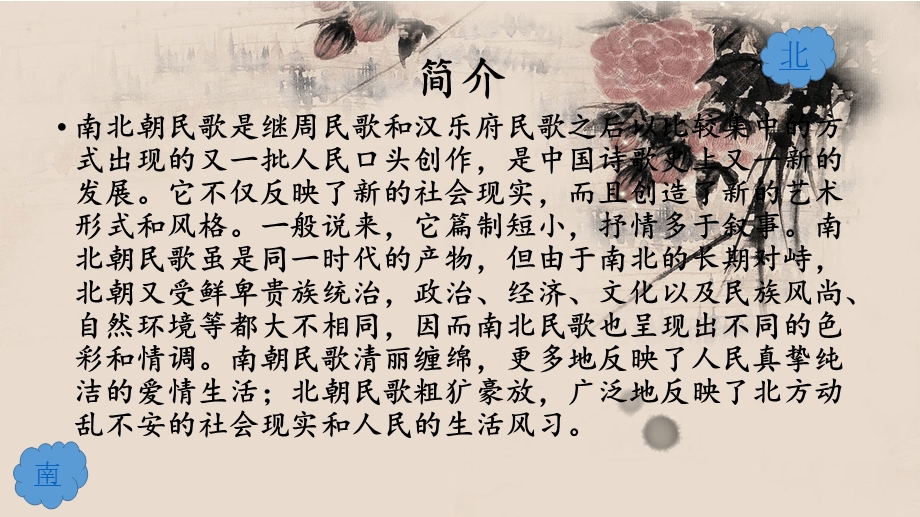 北
简介
• 南北朝民歌是继周民歌和汉乐府民歌之后以比较集中的方
式出现的又一批人民口头创作，是中国诗歌史上又一新的
发展。它不仅反映了新的社会现实，而且创造了新的艺术
形式和风格。一般说来，它篇制短小，抒情多于叙事。南
北朝民歌虽是同一时代的产物，但由于南北的长期对峙，
北朝又受鲜卑贵族统治，政治、经济、文化以及民族风尚、
自然环境等都大不相同，因而南北民歌也呈现出不同的色
彩和情调。南朝民歌清丽缠绵，更多地反映了人民真挚纯
洁的爱情生活；北朝民歌粗犷豪放，广泛地反映了北方动
乱不安的社会现实和人民的生活风习。
南